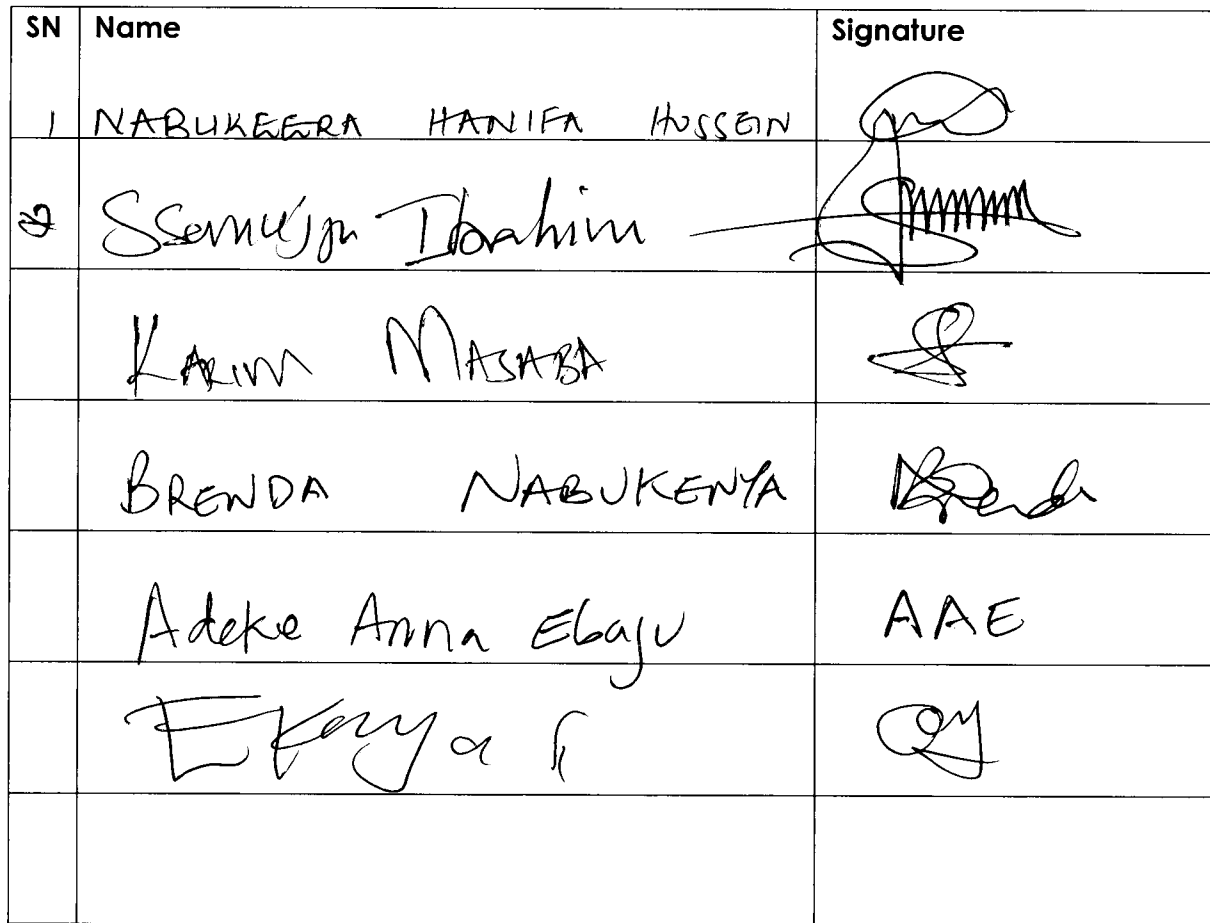 SN Name Signature
1 NABUKEERA HANIFA HUSSEIN
2 Ssemujju Ibrahim
KARIM MASABA
BRENDA NABUKENYA Brenda
Adeke Anna Ebaju AAE